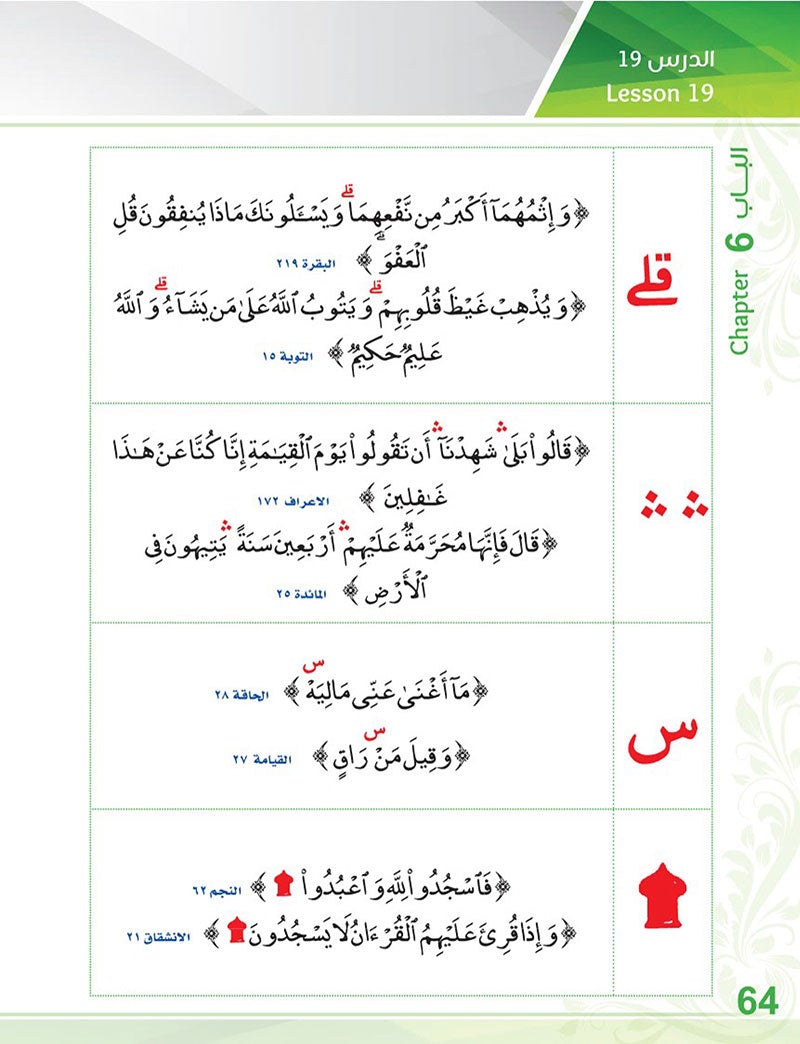 الدرس 19
Lesson 19
الباب 6 Chapter
قلے
﴿وَإِثْمُهُمَآ أَكْبَرُ مِن نَّفْعِهِمَا ۗ وَيَسْـَٔلُونَكَ مَاذَا يُنفِقُونَ قُلِ
ٱلْعَفْوَ ۗ﴾ البقرة ٢١٩
﴿وَيُذْهِبْ غَيْظَ قُلُوبِهِمْ ۗ وَيَتُوبُ ٱللَّهُ عَلَىٰ مَن يَشَآءُ ۗ وَٱللَّهُ
عَلِيمٌ حَكِيمٌ﴾ التوبة ١٥
ۛ ۛ
﴿قَالُوا۟ بَلَىٰ ۛ شَهِدْنَآ ۛ أَن تَقُولُوا۟ يَوْمَ ٱلْقِيَـٰمَةِ إِنَّا كُنَّا عَنْ هَـٰذَا
غَـٰفِلِينَ﴾ الاعراف ١٧٢
﴿قَالَ فَإِنَّهَا مُحَرَّمَةٌ عَلَيْهِمْ ۛ أَرْبَعِينَ سَنَةً ۛ يَتِيهُونَ فِى
ٱلْأَرْضِ﴾ المائدة ٢٥
س
﴿مَآ أَغْنَىٰ عَنِّى مَالِيَهْ ۜ﴾ الحاقة ٢٨
﴿وَقِيلَ مَنْ ۜ رَاقٍ﴾ القيامة ٢٧
﴿فَٱسْجُدُوا۟ لِلَّهِ وَٱعْبُدُوا۟ ۩﴾ النجم ٦٢
﴿وَإِذَا قُرِئَ عَلَيْهِمُ ٱلْقُرْءَانُ لَا يَسْجُدُونَ ۩﴾ الانشقاق ٢١
64